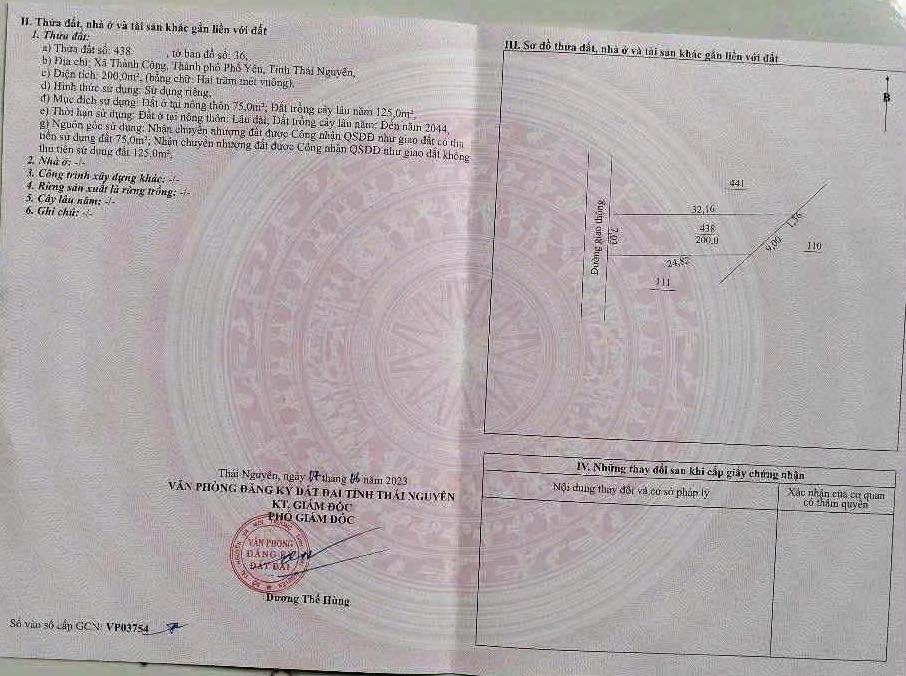 II. Thửa đất, nhà ở và tài sản khác gắn liền với đất
1. Thửa đất:
a) Thửa đất số: 438 , tờ bản đồ số: 36,
b) Địa chỉ: Xã Thành Công, Thành phố Phổ Yên, Tỉnh Thái Nguyên,
c) Diện tích: 200,0m², (bằng chữ: Hai trăm mét vuông),
d) Hình thức sử dụng: Sử dụng riêng,
đ) Mục đích sử dụng: Đất ở tại nông thôn 75,0m²; Đất trồng cây lâu năm 125,0m²,
e) Thời hạn sử dụng: Đất ở tại nông thôn: Lâu dài; Đất trồng cây lâu năm: Đến năm 2044,
g) Nguồn gốc sử dụng: Nhận chuyển nhượng đất được Công nhận QSDĐ như giao đất có thu
tiền sử dụng đất 75,0m²; Nhận chuyển nhượng đất được Công nhận QSDĐ như giao đất không
thu tiền sử dụng đất 125,0m²,
2. Nhà ở: -/-
3. Công trình xây dựng khác: -/-
4. Rừng sản xuất là rừng trồng: -/-
5. Cây lâu năm: -/-
6. Ghi chú: -/-
Thái Nguyên, ngày 07 tháng 06 năm 2023
VĂN PHÒNG ĐĂNG KÝ ĐẤT ĐAI TỈNH THÁI NGUYÊN
KT. GIÁM ĐỐC
PHÓ GIÁM ĐỐC
VĂN PHÒNG
ĐĂNG KÝ
ĐẤT ĐAI
Dương Thế Hùng
Số vào sổ cấp GCN: VP03754
III. Sơ đồ thửa đất, nhà ở và tài sản khác gắn liền với đất
B
441
32,16
438
200,0
Đường giao thông
7,03
24,82
9,00
1,36
110
111
IV. Những thay đổi sau khi cấp giấy chứng nhận
Nội dung thay đổi và cơ sở pháp lý
Xác nhận của cơ quan
có thẩm quyền